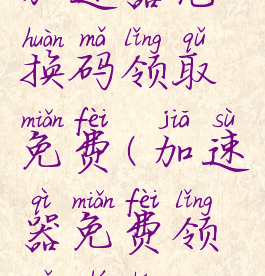 huàn mǎ lǐng qǔ
换码领取
miǎn fèi jiā sù
免费(加速
qì miǎn fèi lǐng
器免费领